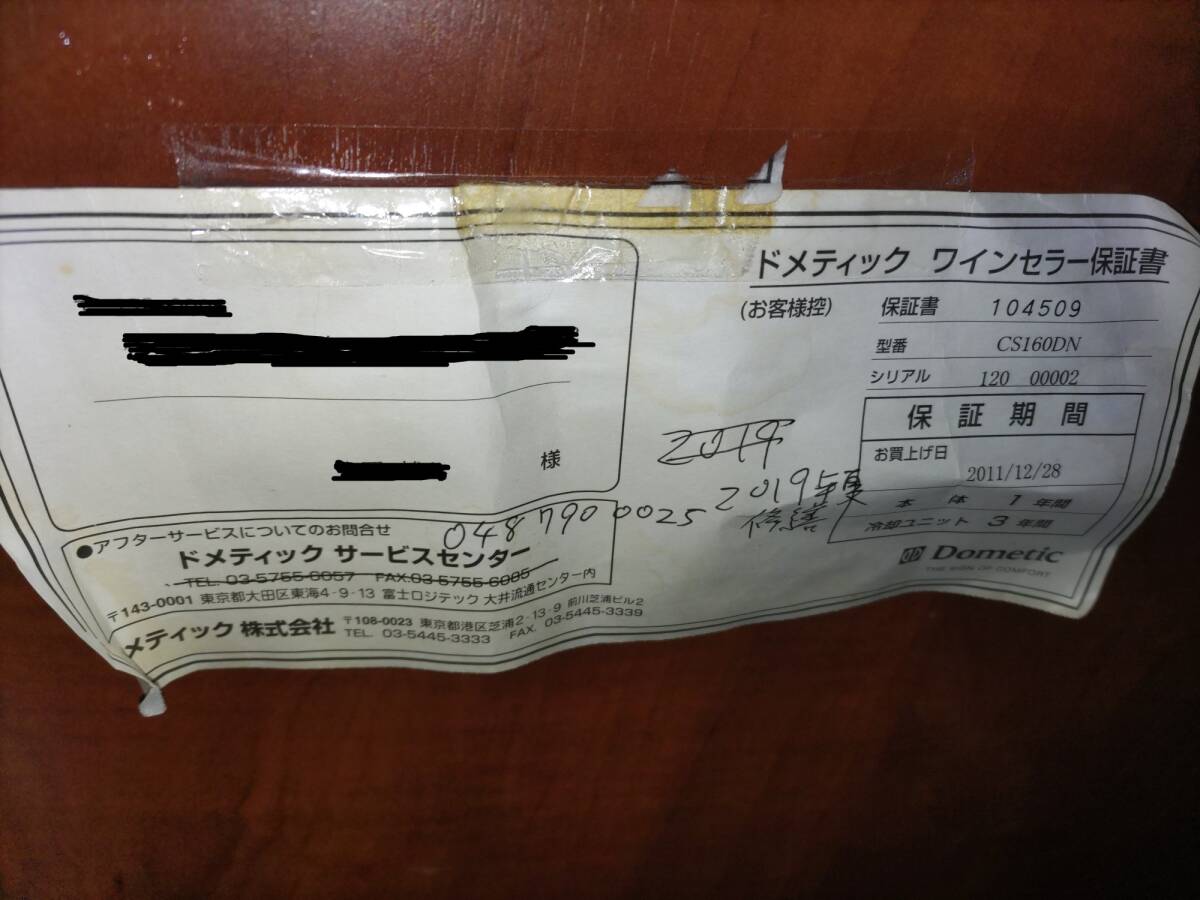 ドメティック ワインセラー保証書
(お客様控)
保証書 104509
型番 CS160DN
シリアル 120 00002
保証期間
お買上げ日
2011/12/28
本体 1年間
冷却ユニット 3年間
Dometic
THE SIGN OF COMFORT
様
2019
2019年夏
修繕
048 790 0025
●アフターサービスについてのお問合せ
ドメティック サービスセンター
TEL. 03-5755-6057 FAX.03-5755-6085
〒143-0001 東京都大田区東海4-9-13 富士ロジテック 大井流通センター内
メティック 株式会社
〒108-0023 東京都港区芝浦2-13-9 前川芝浦ビル2
TEL. 03-5445-3333 FAX. 03-5445-3339